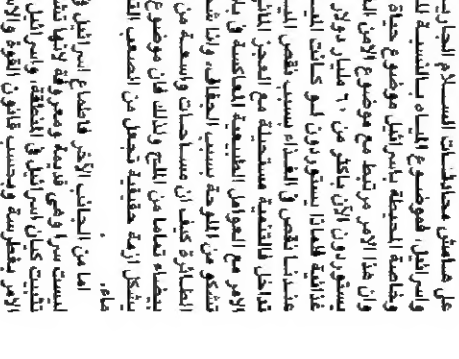 على هامش محادثات السلام الجارية
واسرائيل، فموضوع المياه بالنسبة لل
وخاصة المحيطة باسرائيل موضوع حياة
وان هذا الامر مرتبط مع موضوع الامن ال
يستوردون الآن بأكثر من ٦٠ مليار دولار
غذائية فلماذا يستوردون لو كانت الميـ
عندنا نقص في الغذاء بسبب نقص المي
تداخل فالقضية مستحيلة مع العجز الماثل
الامر مع العوامل الطبيعية المعاكسة و
تشكو من الملوحة بسبب الجفاف، وانا شا
الطائرة كيف ان مساحات واسعة من
بيضاء تماما من الملح ولذلك فان موضوع
يشكل ازمة حقيقية تجعل من الصعب الق
ماء.
اما من الجانب الآخر فاطماع اسرائيل
ليست سرا وهي قديمة ومعروفة لانها تشـ
تثبيت كيان اسرائيل في المنطقة، واسرائيل
الامر بغطرسة وبحسب قانون القوة والا